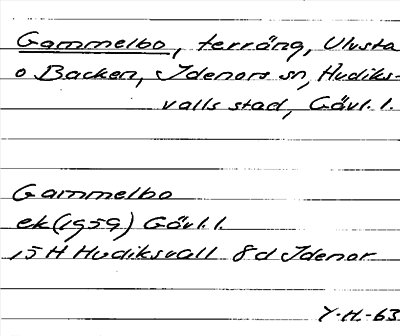 Gammelbo, terräng, Ulvsta
o Backen, Idenors sn, Hudiks-
valls stad, Gävl. l.
Gammelbo
ek (1959) Gävl. l.
15 H Hudiksvall 8 d Idenor
Y.H.-63